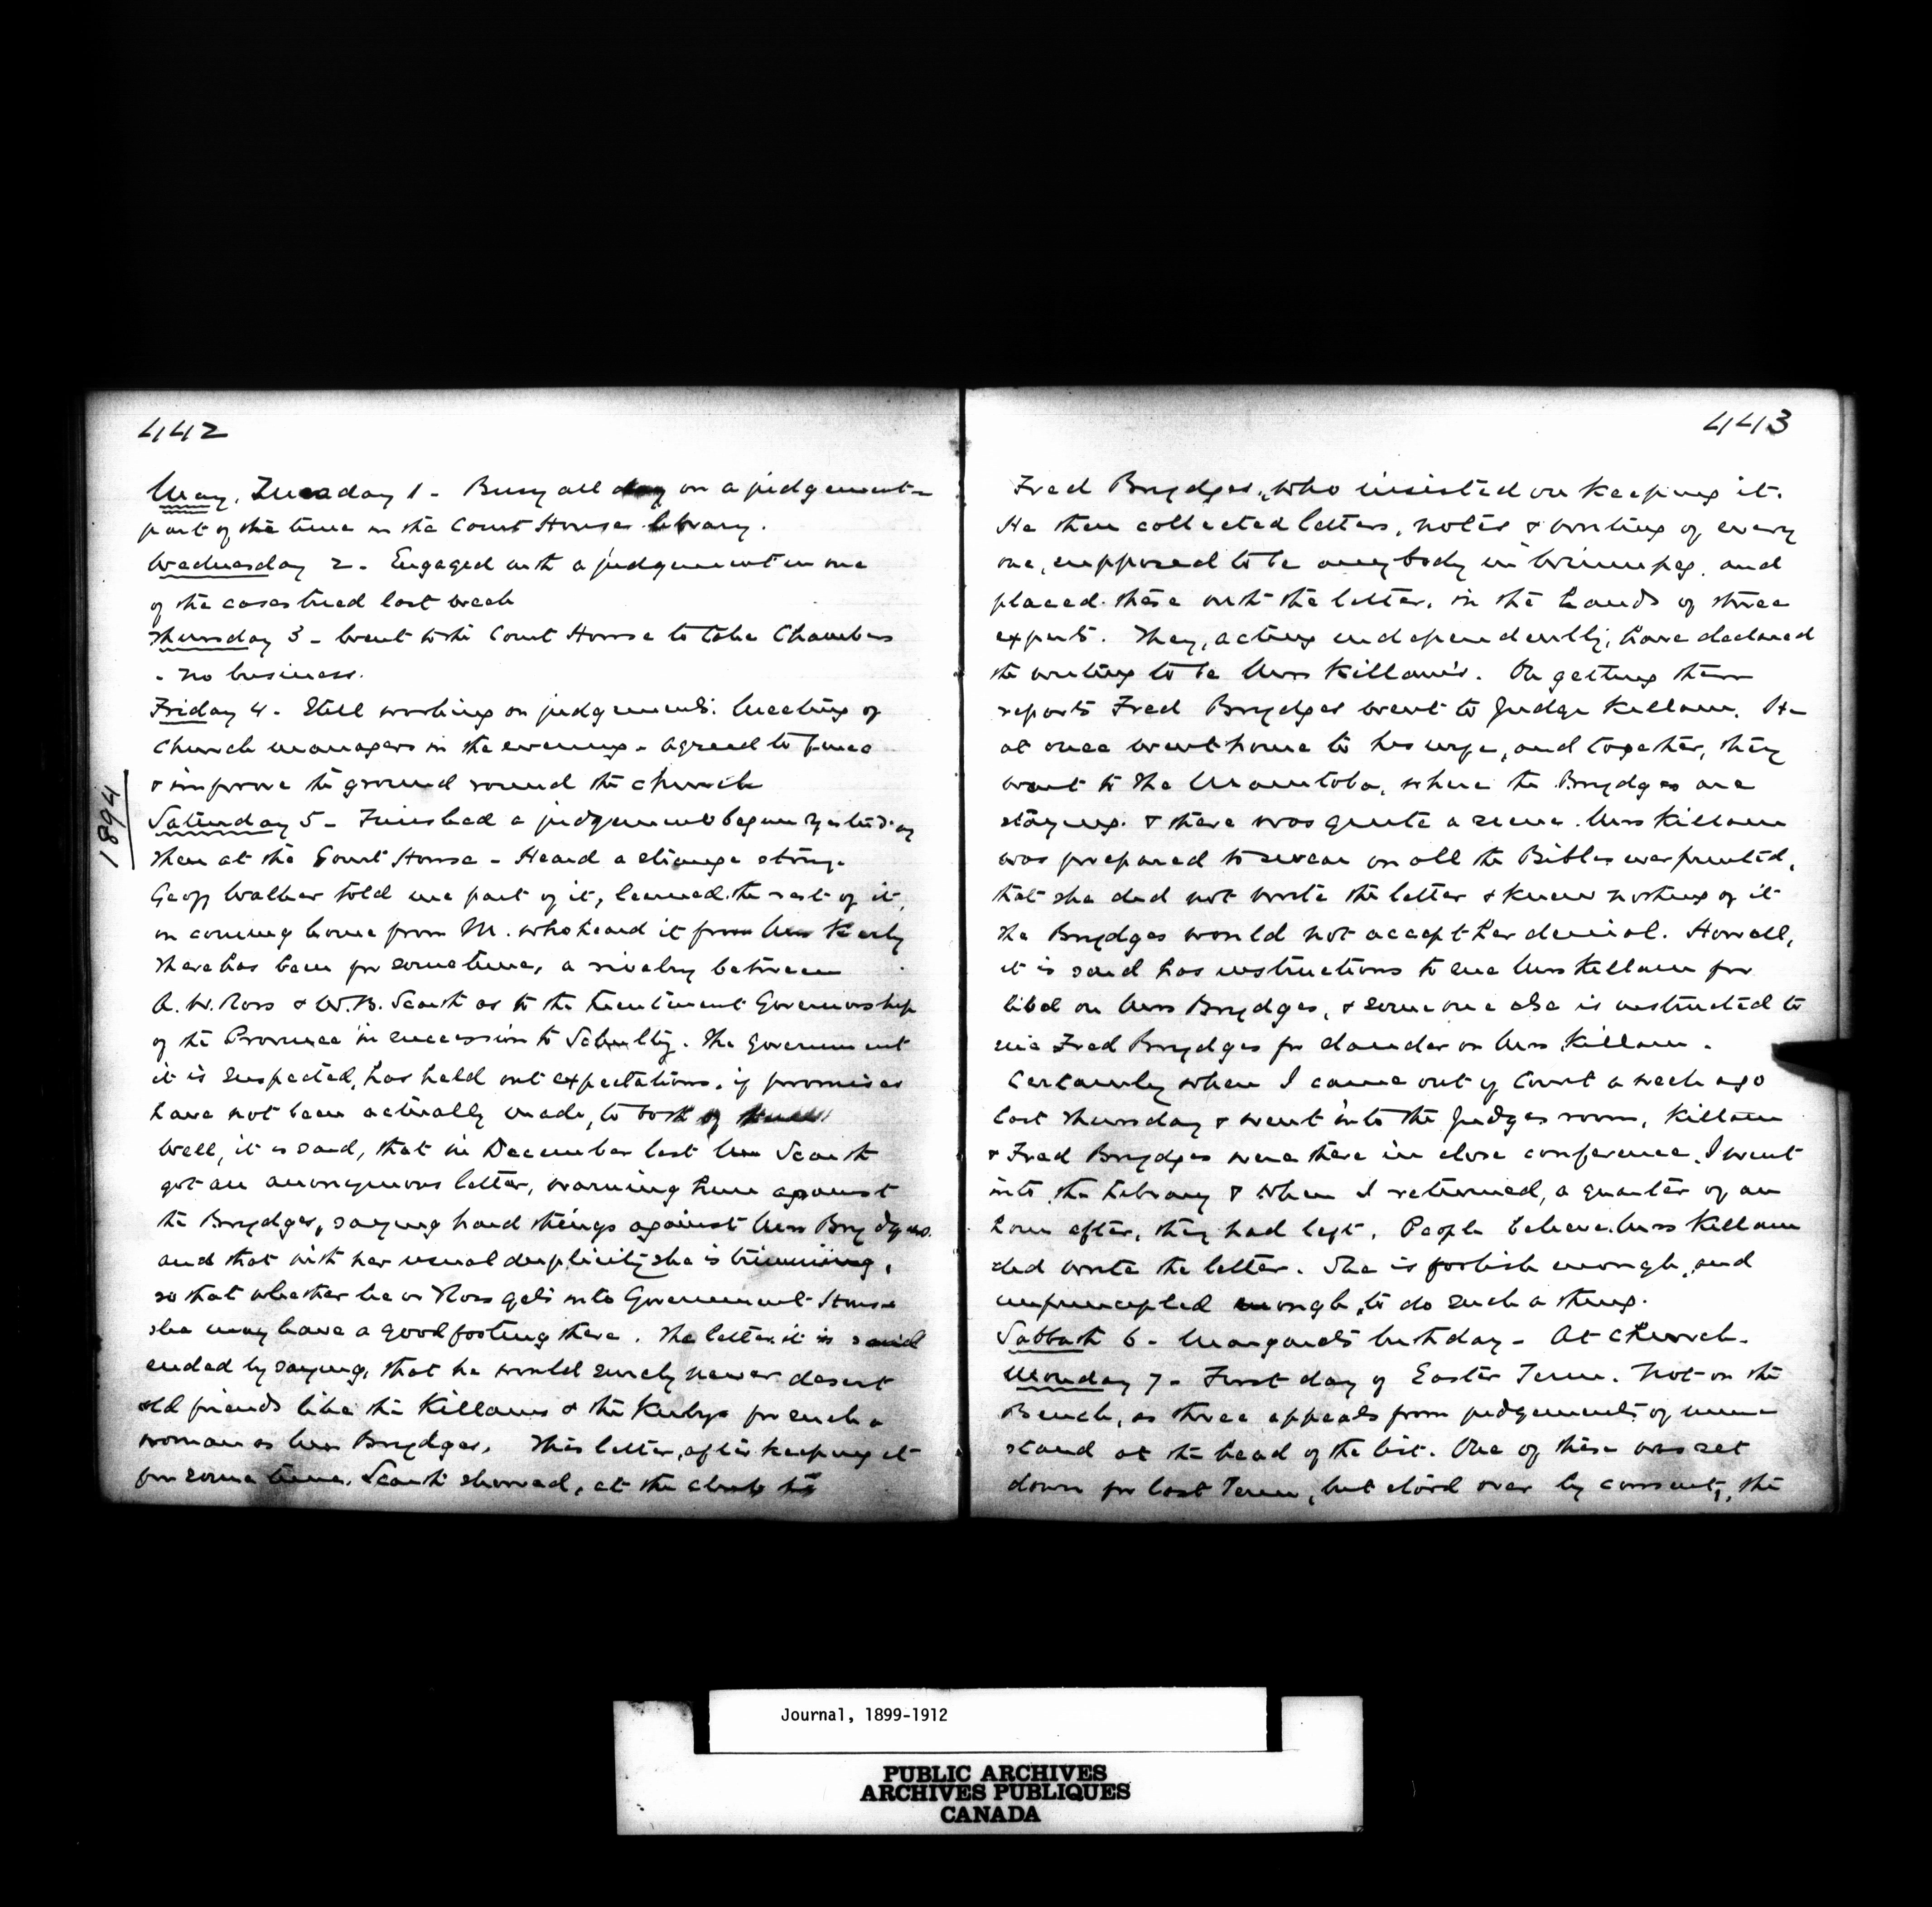 442
May, Tuesday 1 - Busy all day on a judgement -
part of the time in the Court House library.
Wednesday 2 - Engaged with a judgement in one
of the cases tried last week
Thursday 3 - Went to the Court House to take Chambers
- no business.
Friday 4 - Still working on judgements. Meeting of
Church managers in the evening - agreed to fence
& improve the ground round the church
1894
Saturday 5 - Finished a judgement begun yesterday
then at the Court House - Heard a strange story.
Geoff Walker told me part of it, learned the rest of it,
on coming home from M. who heard it from Mrs Kerby
There has been for some time, a rivalry between
A. W. Ross & W. B. Scarth as to the Lieutenant Governorship
of the Province in succession to Schultz. The Government
it is suspected, has held out expectations, if promises
have not been actually made, to both of them
Well, it is said, that in December last Mrs Scarth
got an anonymous letter, warning him against
the Brydges, saying hard things against Mrs Brydges.
and that with her usual duplicity she is trimming,
so that whether he or Ross gets into Government House
she may have a good footing there. The letter it is said
ended by saying, that he would surely never desert
old friends like the Killams & the Kerbys for such a
woman as Mrs Brydges. This letter, after keeping it
for some time, Scarth showed, at the club to
443
Fred Brydges, who insisted on keeping it.
He then collected letters, notes & writing of every
one, supposed to be anybody in Winnipeg, and
placed these with the letter, in the hands of three
experts. They, acting independently, have declared
the writing to be Mrs Killam's. On getting their
reports Fred Brydges went to Judge Killam. He
at once went home to his wife, and together, they
went to the Manitoba, where the Brydges are
staying, & there was quite a scene. Mrs Killam
was prepared to swear on all the Bibles ever printed,
that she did not write the letter & knew nothing of it
The Brydges would not accept her denial. Howell,
it is said has instructions to sue Mrs Killam for
libel on Mrs Brydges, & some one else is instructed to
sue Fred Brydges for slander on Mrs Killam.
Certainly when I came out of Court a week ago
last Thursday & went into the Judges room, Killam
& Fred Brydges were there in close conference. I went
into the library & when I returned, a quarter of an
hour after, they had left. People believe Mrs Killam
did write the letter. She is foolish enough, and
unprincipled enough, to do such a thing.
Sabbath 6 - Margaret's birthday - At church.
Monday 7 - First day of Easter Term. Not on the
Bench, as three appeals from judgements of mine
stand at the head of the list. One of these was set
down for last Term, but stood over by consent, the
Journal, 1899-1912
PUBLIC ARCHIVES
ARCHIVES PUBLIQUES
CANADA